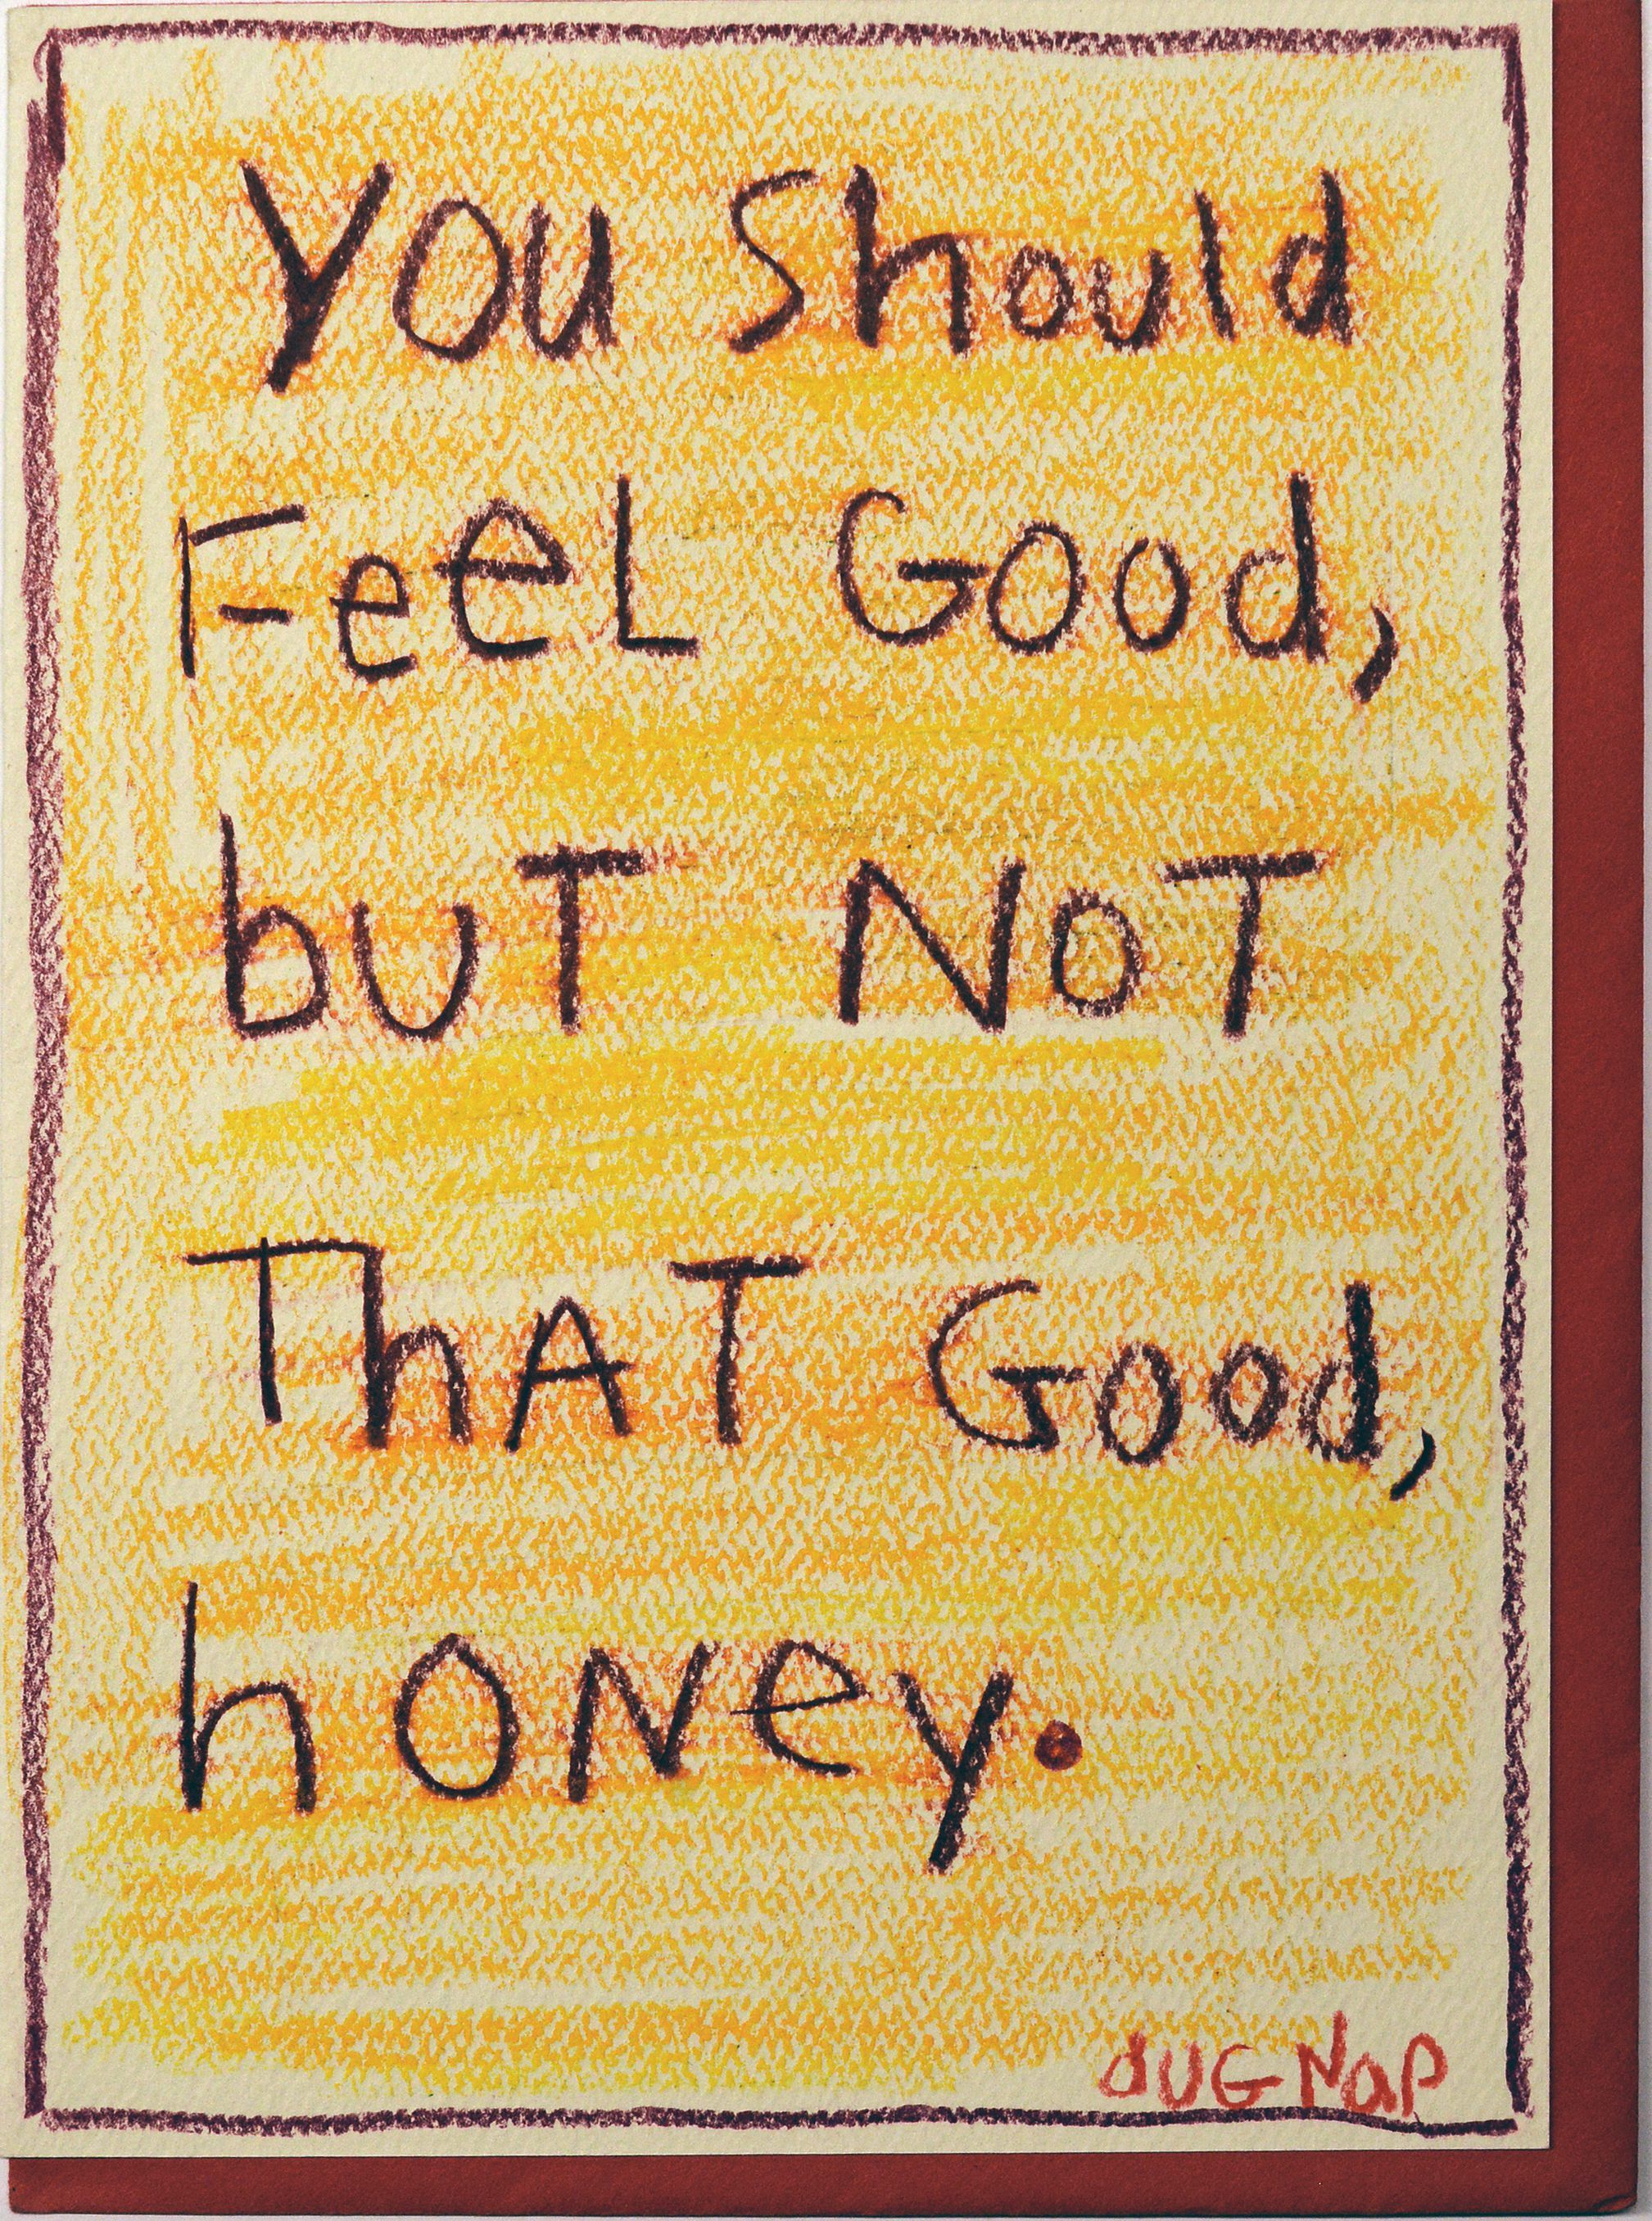 You Should
FeeL Good,
buT NoT
ThAT Good,
hoNey.
dUG Nap